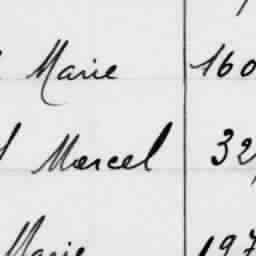 Marie 160
Marcel 32
Marie 197